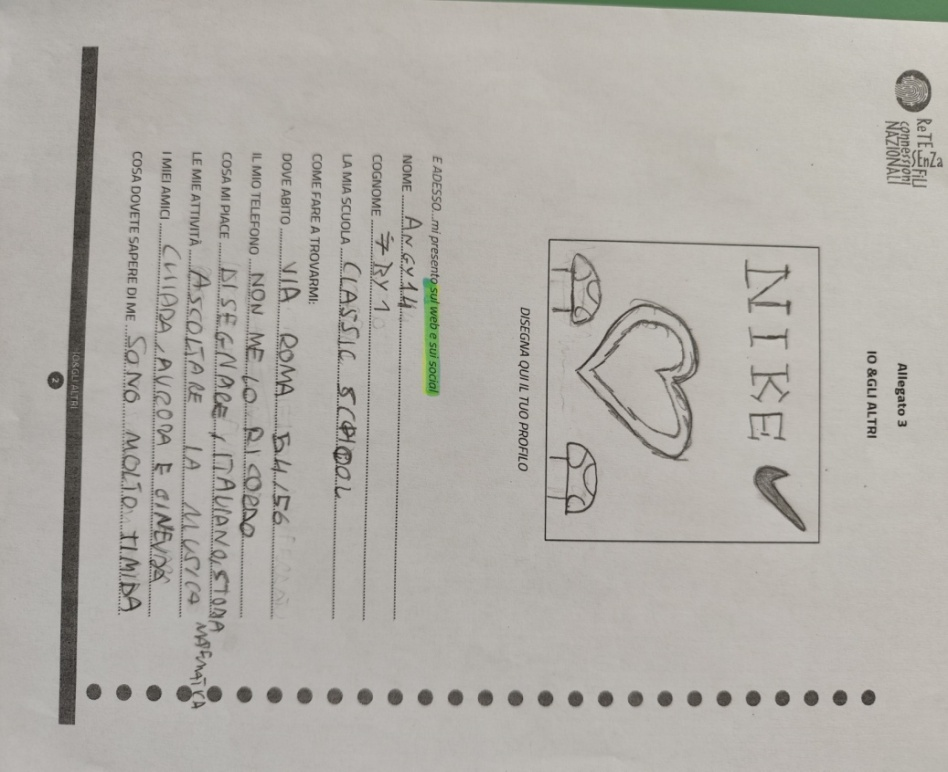 ReTE ZA
SENZA FiLi
connessioni
NAZIONALI
Allegato 3
IO &GLI ALTRI
NIKE
DISEGNA QUI IL TUO PROFILO
E ADESSO...mi presento sul web e sui social
NOME ANGY14
COGNOME
LA MIA SCUOLA CLASSIC SCHOOL
COME FARE A TROVARMI:
DOVE ABITO VIA ROMA 54/56
IL MIO TELEFONO NON ME LO RICORDO
COSA MI PIACE DISEGNARE, ITALIANO, STORIA MATEMATICA
LE MIE ATTIVITÀ ASCOLTARE LA MUSICA
I MIEI AMICI AURORA E GINEVRA
COSA DOVETE SAPERE DI ME SONO MOLTO TIMIDA
IO&GLI ALTRI
2